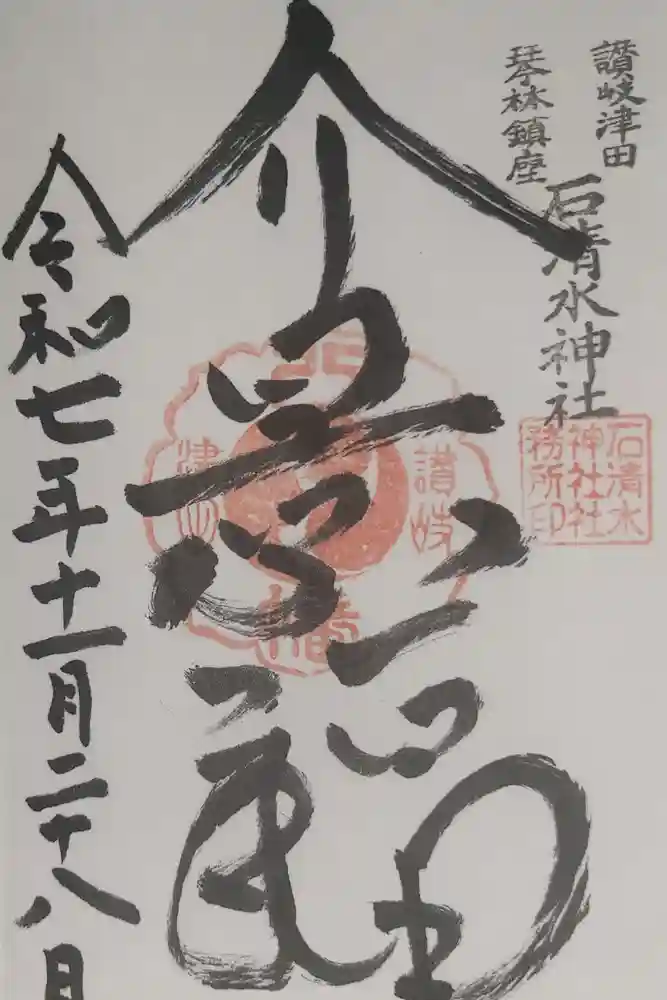 讃岐津田
琴林鎮座
石清水神社
石清水
神社社
務所印
介景福
讃岐
津田
令和七年十一月二十八日